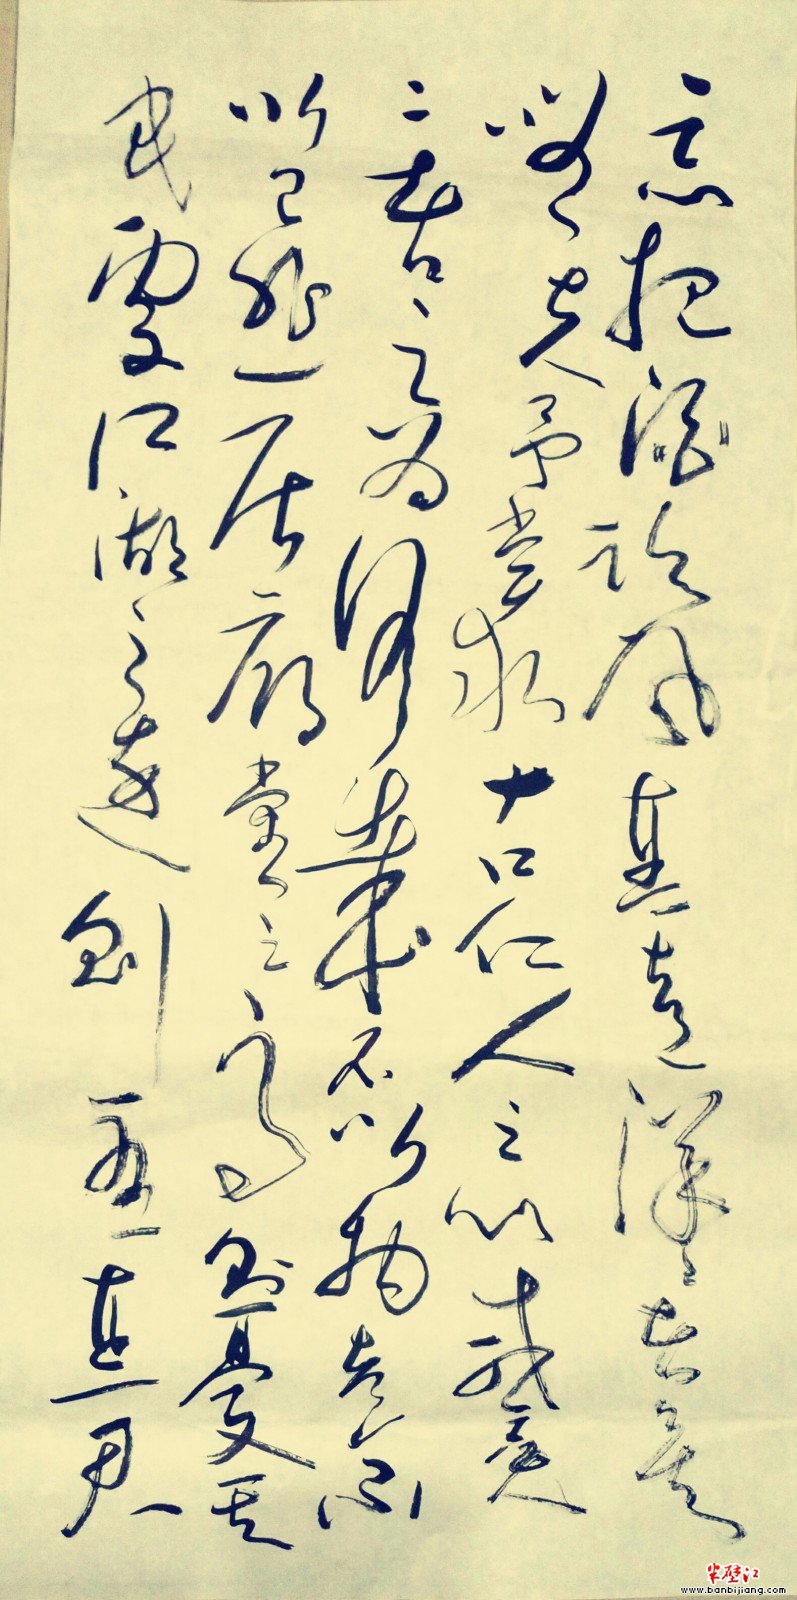 忘把酒臨風其喜洋洋者矣
嗟夫予嘗求古仁人之心或異
二者之為何哉不以物喜不
以己悲居廟堂之高則憂其
民處江湖之遠則憂其君
半壁江
www.banbijiang.com